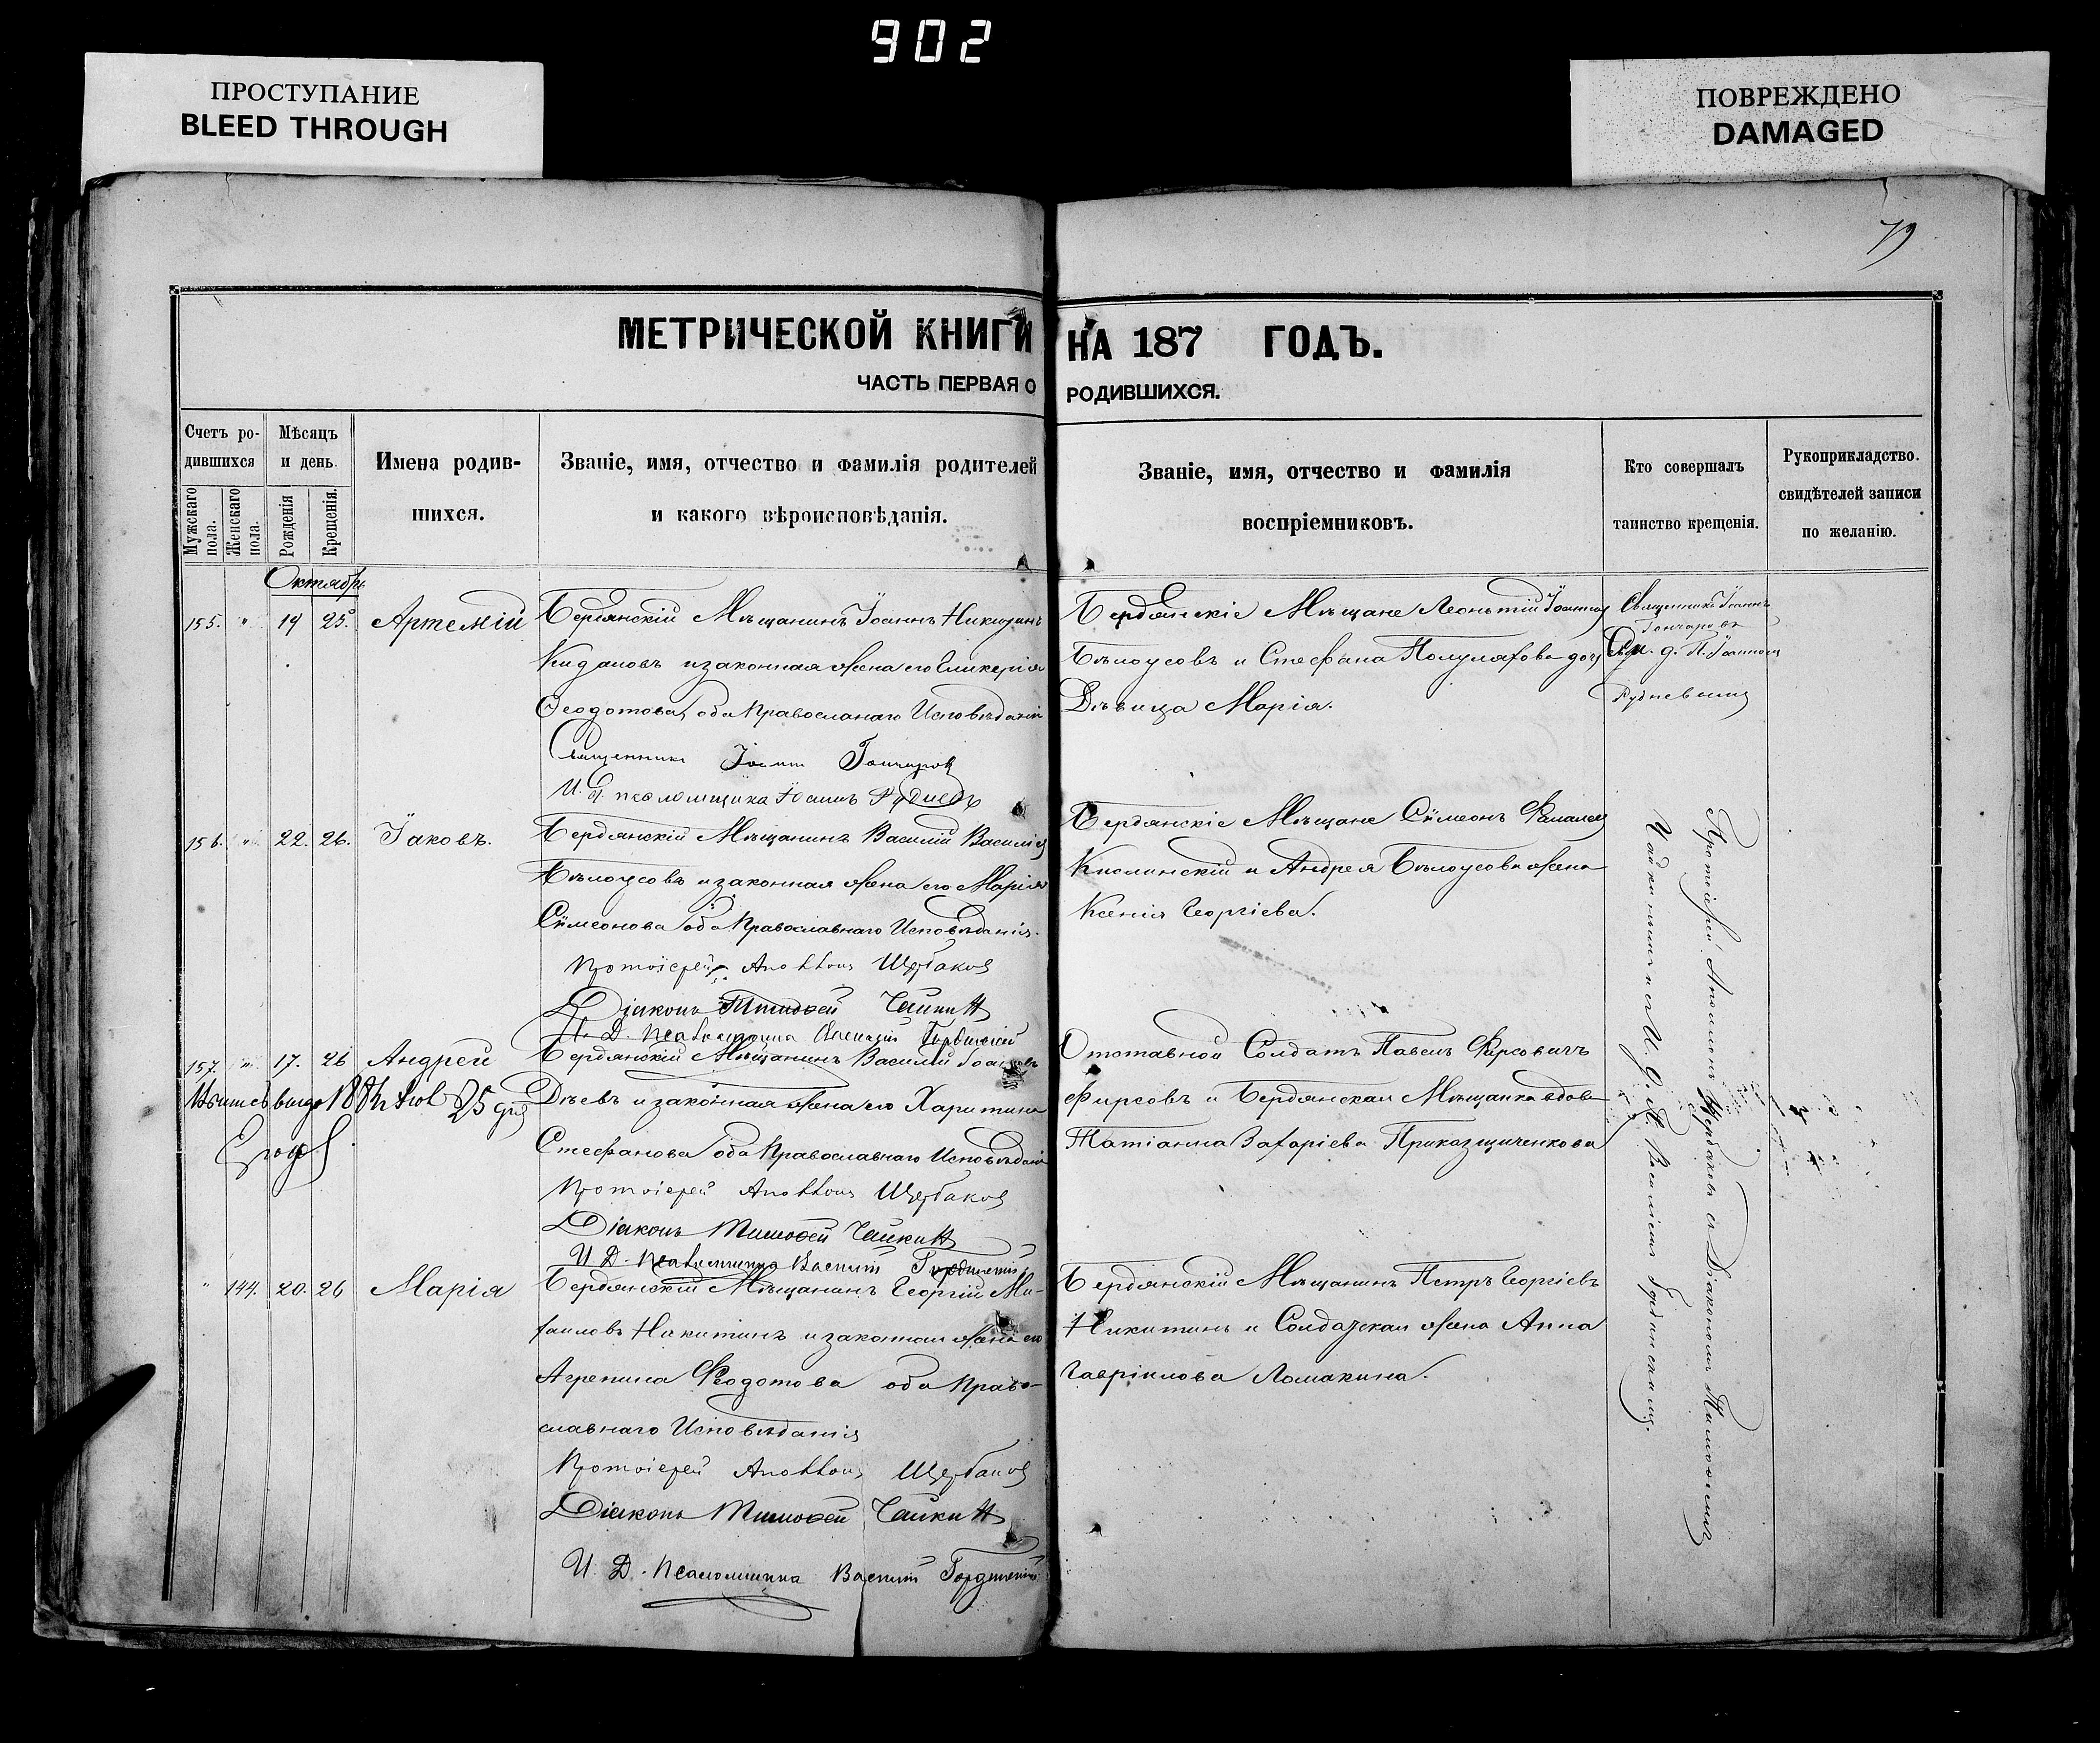 902
ПРОСТУПАНИЕ
BLEED THROUGH
ПОВРЕЖДЕНО
DAMAGED
79
МЕТРИЧЕСКОЙ КНИГИ НА 187 ГОДЪ.
ЧАСТЬ ПЕРВАЯ О РОДИВШИХСЯ.
Счетъ ро-
дившихся
Мужскаго пола.
Женскаго пола.
Мѣсяцъ
и день.
Рожденія
Крещенія.
Имена родив-
шихся.
Званіе, имя, отчество и фамилія родителей
и какого вѣроисповѣданія.
Званіе, имя, отчество и фамилія
воспріемниковъ.
Кто совершалъ
таинство крещенія.
Рукоприкладство.
свидѣтелей записи
по желанію.
Октябрь
155. " 19 25. Артемій
Бердянскій Мѣщанинъ Іоаннъ
и законная жена его Гликерія
Феодотова, оба Православнаго Исповѣданія
Священникъ Іоаннъ Гончаровъ
И. д. псаломщика Іоаннъ Рудневъ
Бердянскіе Мѣщане Леонтій
Бѣлоусовъ и Стефана дочь
Дѣвица Марія.
Священникъ Іоаннъ
Гончаровъ
156. " 22. 26. Іаковъ.
Бердянскій Мѣщанинъ Василій Василіев
Бѣлоусовъ и законная жена его Марія
Сѵмеонова оба Православнаго Исповѣданія.
Протоіерей Аполлонъ Щербаковъ
Діаконъ Тимофей Чайкинъ
И. Д. Псаломщика Василій
Бердянскіе Мѣщане Сѵмеонъ
Кислинскій и Андрея Бѣлоусова жена
Ксенія Георгіева.
157. " 17. 26 Андрей
Бердянскій Мѣщанинъ Василій
Дѣевъ и законная жена его Харитина
Стефанова оба Православнаго Исповѣданія
Протоіерей Аполлонъ Щербаковъ
Діаконъ Тимофей Чайкинъ
И. Д. Псаломщика Василій
25 дня
Отставной Солдатъ Павелъ Фирсовичъ
Фирсовъ и Бердянская Мѣщанка вдова
Татіанна Захаріева Приказщиченкова
" 144. 20. 26 Марія
Бердянскій Мѣщанинъ Георгій Ми-
хаиловъ Никитинъ и законная жена его
Агрепина Феодотова оба Право-
славнаго Исповѣданія
Протоіерей Аполлонъ Щербаковъ
Діаконъ Тимофей Чайкинъ
И. Д. Псаломщика Василій
Бердянскій Мѣщанинъ Петръ Георгіевъ
Никитинъ и Солдатская жена Анна
Гавріилова Ломакина.
Протоіерей Аполлонъ Щербаковъ съ Діакономъ Тимофеемъ
Чайкинымъ и съ И. д. П. Василіемъ